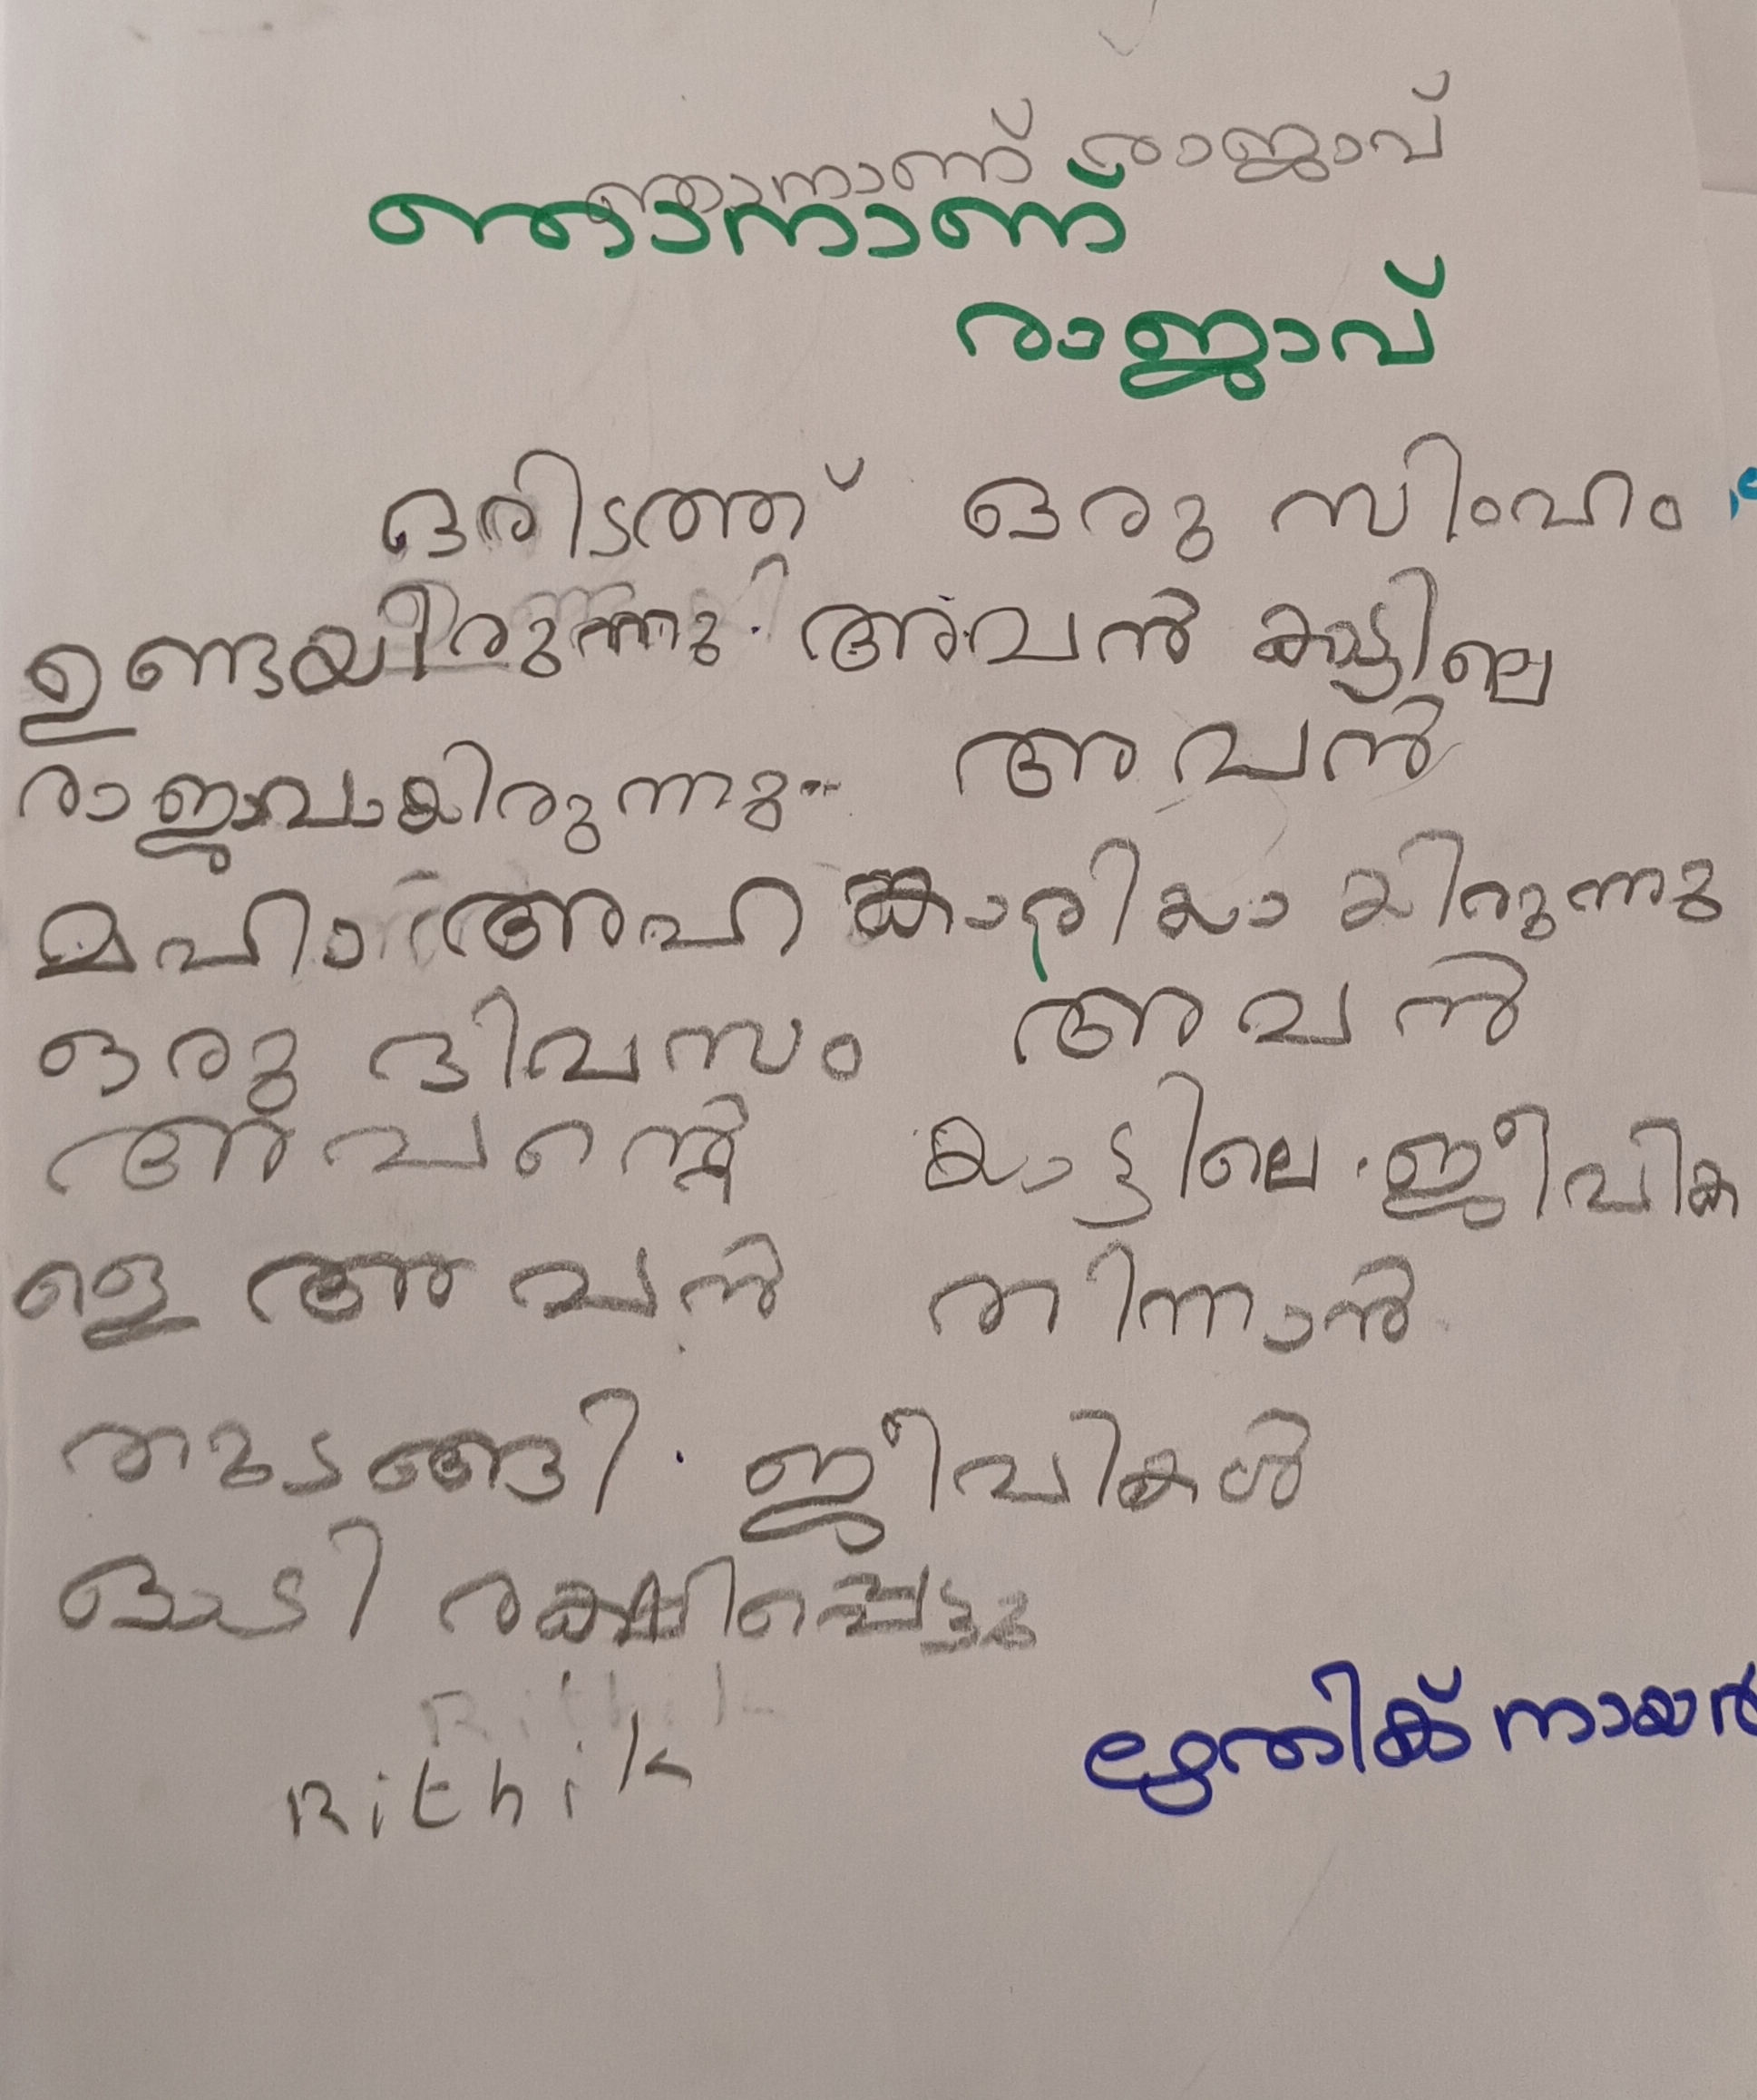 ഞാനാണ് രാജാവ്
ഞാനാണ്
രാജാവ്
ഒരിടത്ത് ഒരു സിംഹം
ഉണ്ടയിരുന്നു. അവൻ കാട്ടിലെ
രാജാവായിരുന്നു. അവൻ
മഹാ അഹങ്കാരിയായിരുന്നു
ഒരു ദിവസം അവൻ
അവന്റെ കാട്ടിലെ ജീവിക
ളെ അവൻ തിന്നാൻ
തുടങ്ങി. ജീവികൾ
ഓടി രക്ഷിപ്പെട്ടു
Rithik
Rithik
ഋതിക് നായർ